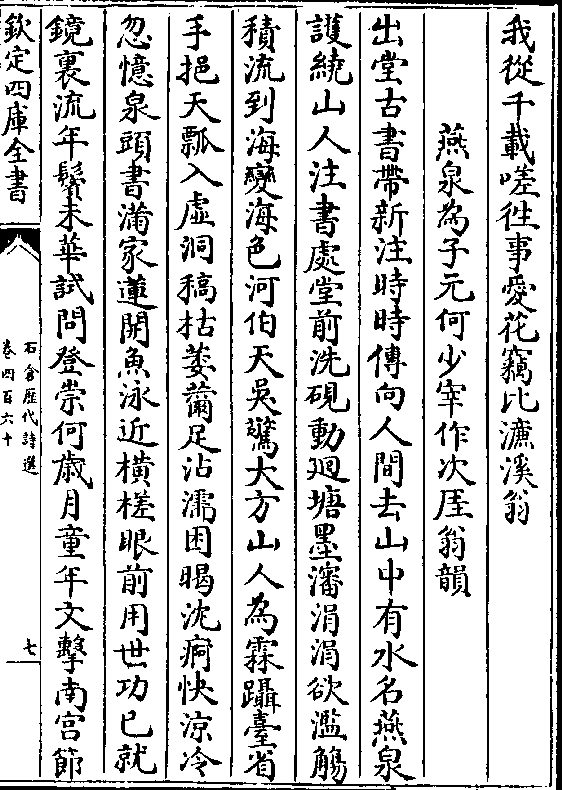 我從千載嗟徃事愛花竊比濂溪翁
燕泉為子元何少宰作次厓翁韻
出堂古書帶新注時時傳向人間去山中有水名燕泉
護繞山人注書處堂前洗硯動迴塘墨瀋涓涓欲濫觴
積流到海變海色河伯天吳驚大方山人為霖躡臺省
手挹天瓢入虛洞稿枯萎薾足沾濡困暍沈痾快涼冷
忽憶泉頭書滿家蓮開魚泳近横槎眼前用世功已就
鏡裏流年鬢未華試問登崇何歲月童年文擊南宫節
欽定四庫全書
石倉歷代詩選
卷四百六十
七